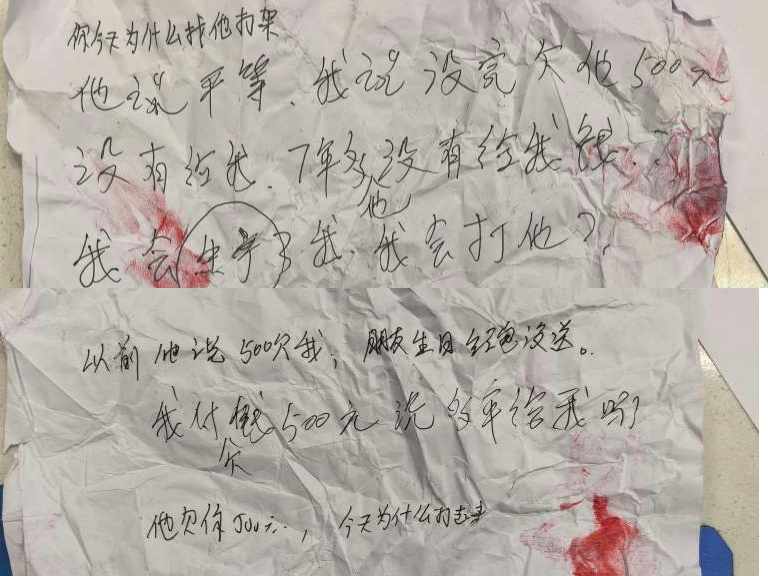 你今天为什么找他打架
他说平等、我说没完欠他500元
没有给我、7年多没有给我钱、
他
我会(生亨)了我、我会打他?
以前他说500欠我, 朋友生日红包没送。
我付钱500元说多年给我吗?
欠
他欠你500元., 今天为什么打起来